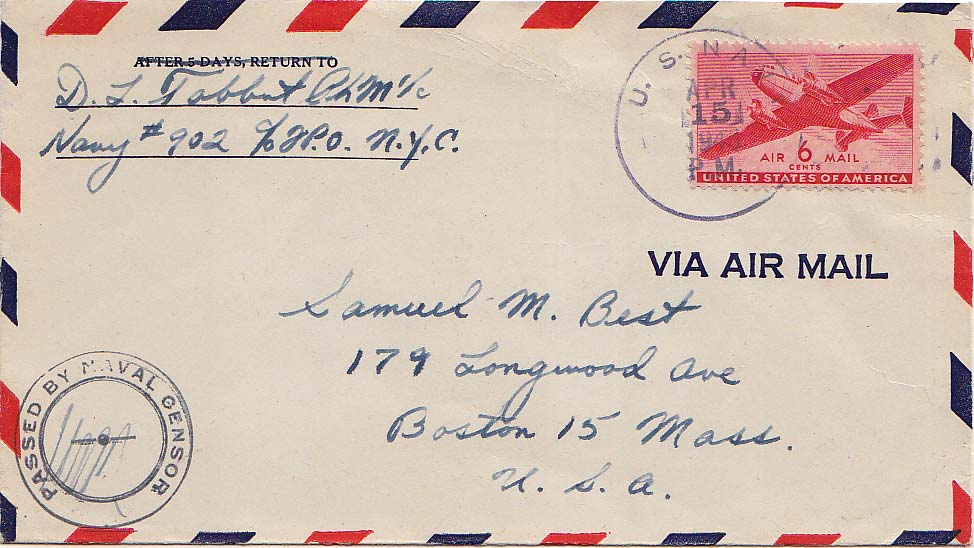 AFTER 5 DAYS, RETURN TO
D. L. Tabbut PhM 1/c
Navy # 902 c/o F.P.O. N.Y.C.
U. S. NA
APR
15
19
P.M.
AIR 6 MAIL
CENTS
UNITED STATES OF AMERICA
VIA AIR MAIL
Samuel M. Best
179 Longwood Ave
Boston 15 Mass.
U. S. A.
PASSED BY NAVAL CENSOR